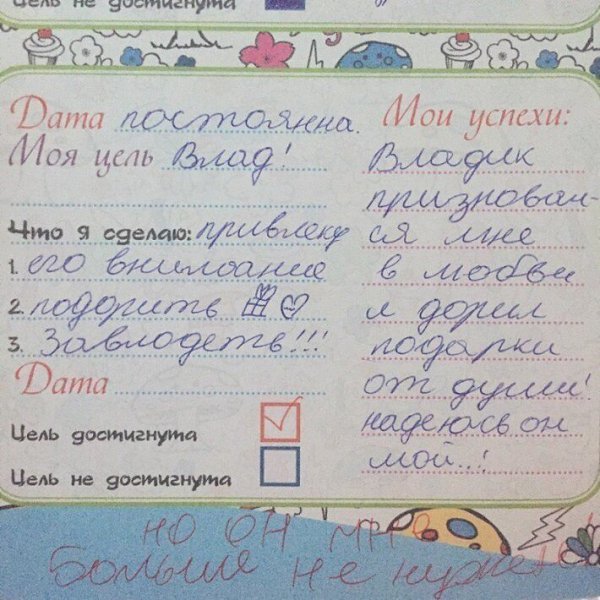 Цель не достигнута
Дата постоянна.
Моя цель Влад!
Что я сделаю: привлеку
1. его внимоание
2. подорить
3. Завлодеть!!!
Дата
Цель достигнута
Цель не достигнута
Мои успехи:
Владик
призновал-
ся мне
в любви
и дорил
подарки
от души!
надеюсь он
мой..!
но он мне
больше не нужен